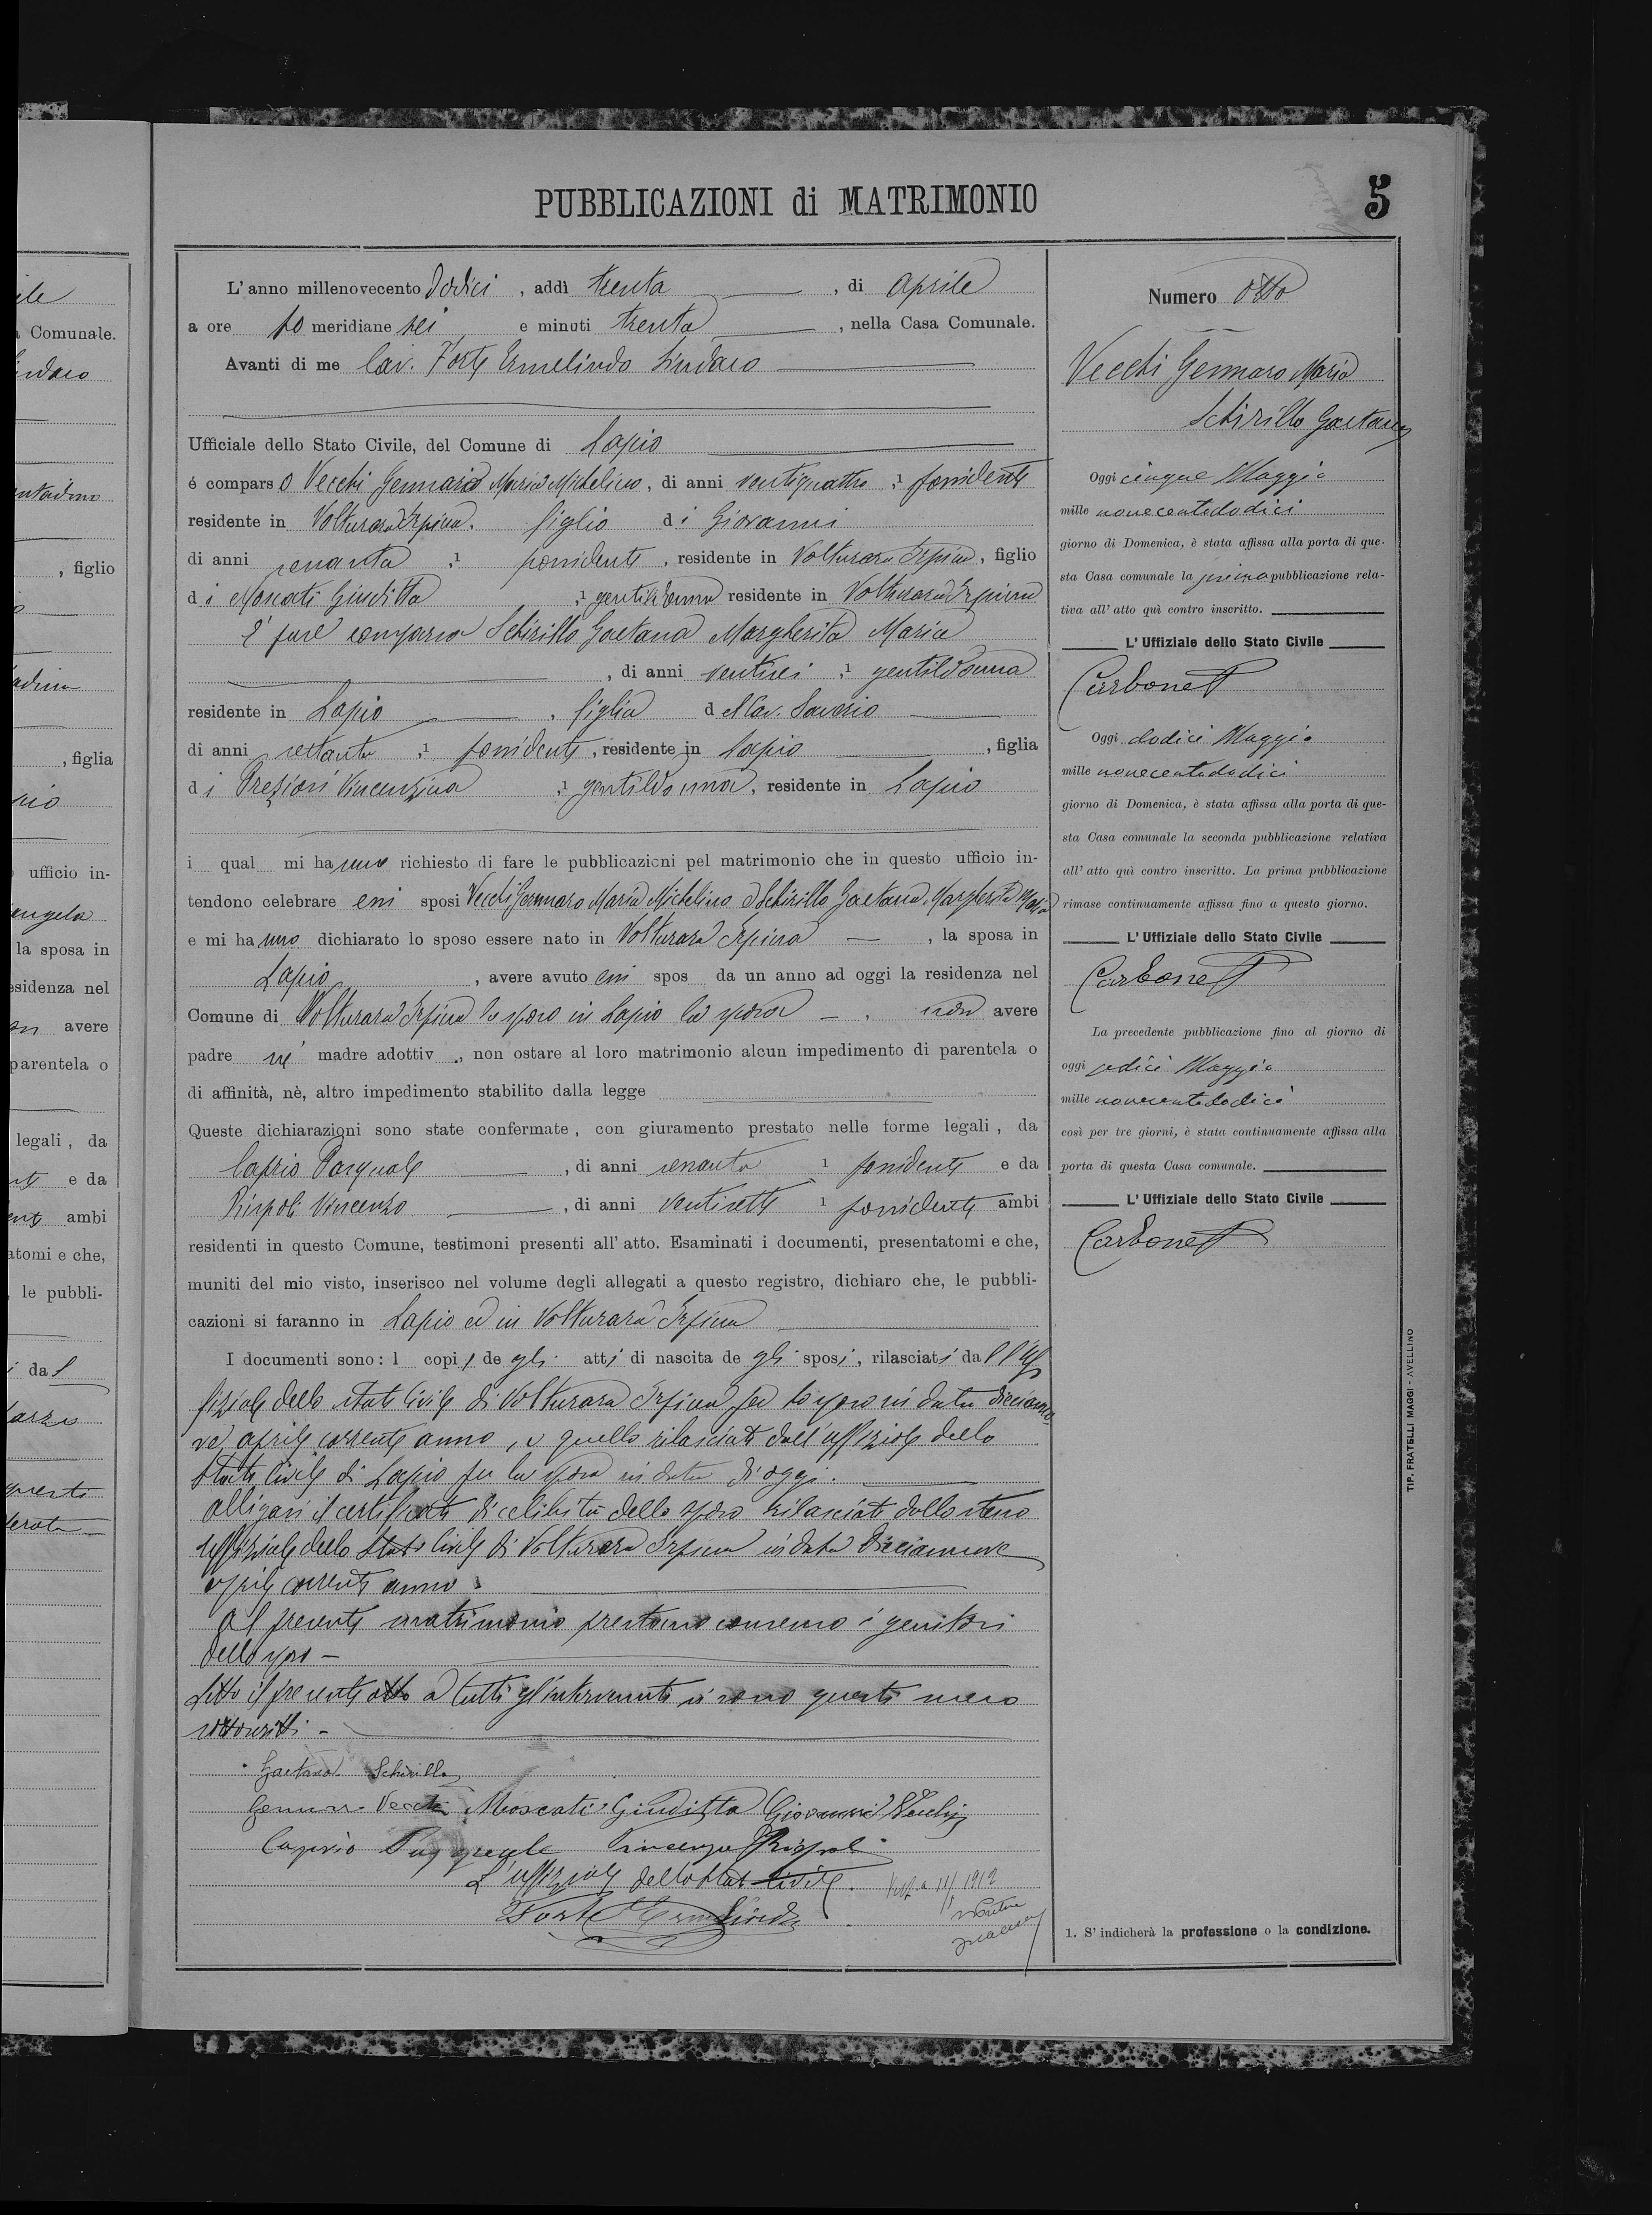 PUBBLICAZIONI di MATRIMONIO
5
L'anno millenovecento dodici, addì trenta, di Aprile
a ore po meridiane sei e minuti trenta, nella Casa Comunale.
Avanti di me Cav. Forte Ermelindo Sindaco
Ufficiale dello Stato Civile, del Comune di Lapio
é comparso Vecchi Gennaro Maria Michelino, di anni ventiquattro, 1 possidente
residente in Volturara Irpina. figlio di Giovanni
di anni sessanta, 1 possidente, residente in Volturara Irpina, figlio
di Moscati Giuditta, 1 gentildonna residente in Volturara Irpina
E' pure comparsa Schirillo Gaetana Margherita Maria
, di anni ventisei, 1 gentildonna
residente in Lapio, figlia del Cav. Saverio
di anni settanta, 1 possidente, residente in Lapio, figlia
di Preziosi Vincenzina, 1 gentildonna, residente in Lapio
i qual mi hanno richiesto di fare le pubblicazioni pel matrimonio che in questo ufficio in-
tendono celebrare essi sposi Vecchi Gennaro Maria Michelino e Schirillo Gaetana Margherita Maria
e mi hanno dichiarato lo sposo essere nato in Volturara Irpina, la sposa in
Lapio, avere avuto essi spos da un anno ad oggi la residenza nel
Comune di Volturara Irpina lo sposo in Lapio la sposa, non avere
padre nè madre adottiv, non ostare al loro matrimonio alcun impedimento di parentela o
di affinità, nè, altro impedimento stabilito dalla legge
Queste dichiarazioni sono state confermate, con giuramento prestato nelle forme legali, da
Caprio Pasquale, di anni sessanta 1 possidente e da
Rispoli Vincenzo, di anni ventisette 1 possidente ambi
residenti in questo Comune, testimoni presenti all'atto. Esaminati i documenti, presentatomi e che,
muniti del mio visto, inserisco nel volume degli allegati a questo registro, dichiaro che, le pubbli-
cazioni si faranno in Lapio ed in Volturara Irpina
I documenti sono: l copie degli atti di nascita degli sposi, rilasciati dall'Uf
fiziale dello stato civile di Volturara Irpina per lo sposo in data dicianno
ve aprile corrente anno, e quello rilasciato dall'uffiziale dello
Stato civile di Lapio per la sposa in data di oggi.
Alligasi il certificato di celibità dello sposo rilasciato dallo stesso
uffiziale dello Stato Civile di Volturara Irpina in data diciannove
aprile corrente anno.
Al presente matrimonio prestano consenso i genitori
dello sposo —
Letto il presente atto a tutti gl'intervenuti si sono questi meco
sottoscritti. -
Gaetana Schirillo
Gennaro Vecchi Moscati Giuditta Giovanni Vecchi
Caprio Pasquale Vincenzo Rispoli
L'uffiziale dello Stato Civile.
Forte Ermelindo
Numero Otto
Vecchi Gennaro Maria
Schirillo Gaetana
Oggi cinque Maggio
mille novecentododici
giorno di Domenica, è stata affissa alla porta di que-
sta Casa comunale la prima pubblicazione rela-
tiva all'atto quì contro inscritto.
L'Uffiziale dello Stato Civile
Carbone
Oggi dodici Maggio
mille novecentododici
giorno di Domenica, è stata affissa alla porta di que-
sta Casa comunale la seconda pubblicazione relativa
all'atto quì contro inscritto. La prima pubblicazione
rimase continuamente affissa fino a questo giorno.
L'Uffiziale dello Stato Civile
Carbone
La precedente pubblicazione fino al giorno di
oggi sedici Maggio
mille novecentododici
così per tre giorni, è stata continuamente affissa alla
porta di questa Casa comunale.
L'Uffiziale dello Stato Civile
Carbone
1. S'indicherà la professione o la condizione.
TIP. FRATELLI MAGGI - AVELLINO
Comunale.
, figlio
, figlia
ufficio in-
la sposa in
avere
parentela o
legali, da
e da
ambi
le pubbli-